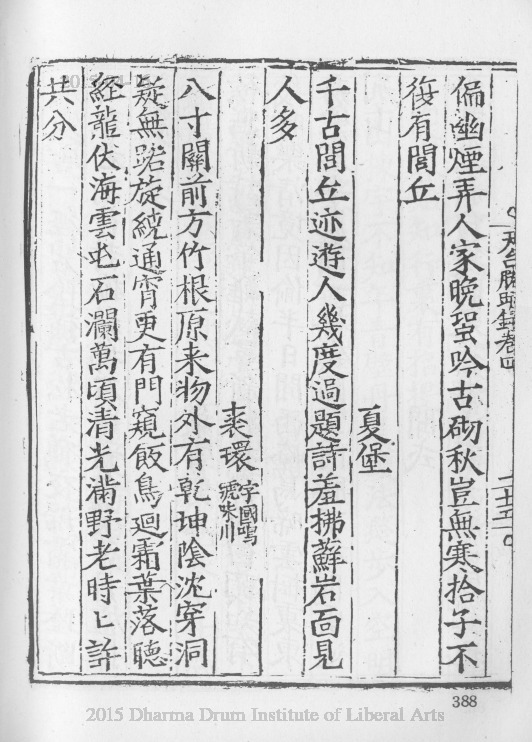 天台勝蹟錄卷四 二十五
偏幽煙弄人家晚蛩吟古砌秋豈無寒拾子不
復有閭丘
夏堡
千古閭丘迹遊人幾度過題詩羞拂蘚岩面見
人多
裘環 字國鳴
號味川
八寸關前方竹根原来物外有乾坤陰沈穿洞
疑無路旋繞通霄更有門窺飯鳥廻霜葉落聽
経龍伏海雲屯石瀾萬頃清光滿野老時匕許
共分
388
2015 Dharma Drum Institute of Liberal Arts